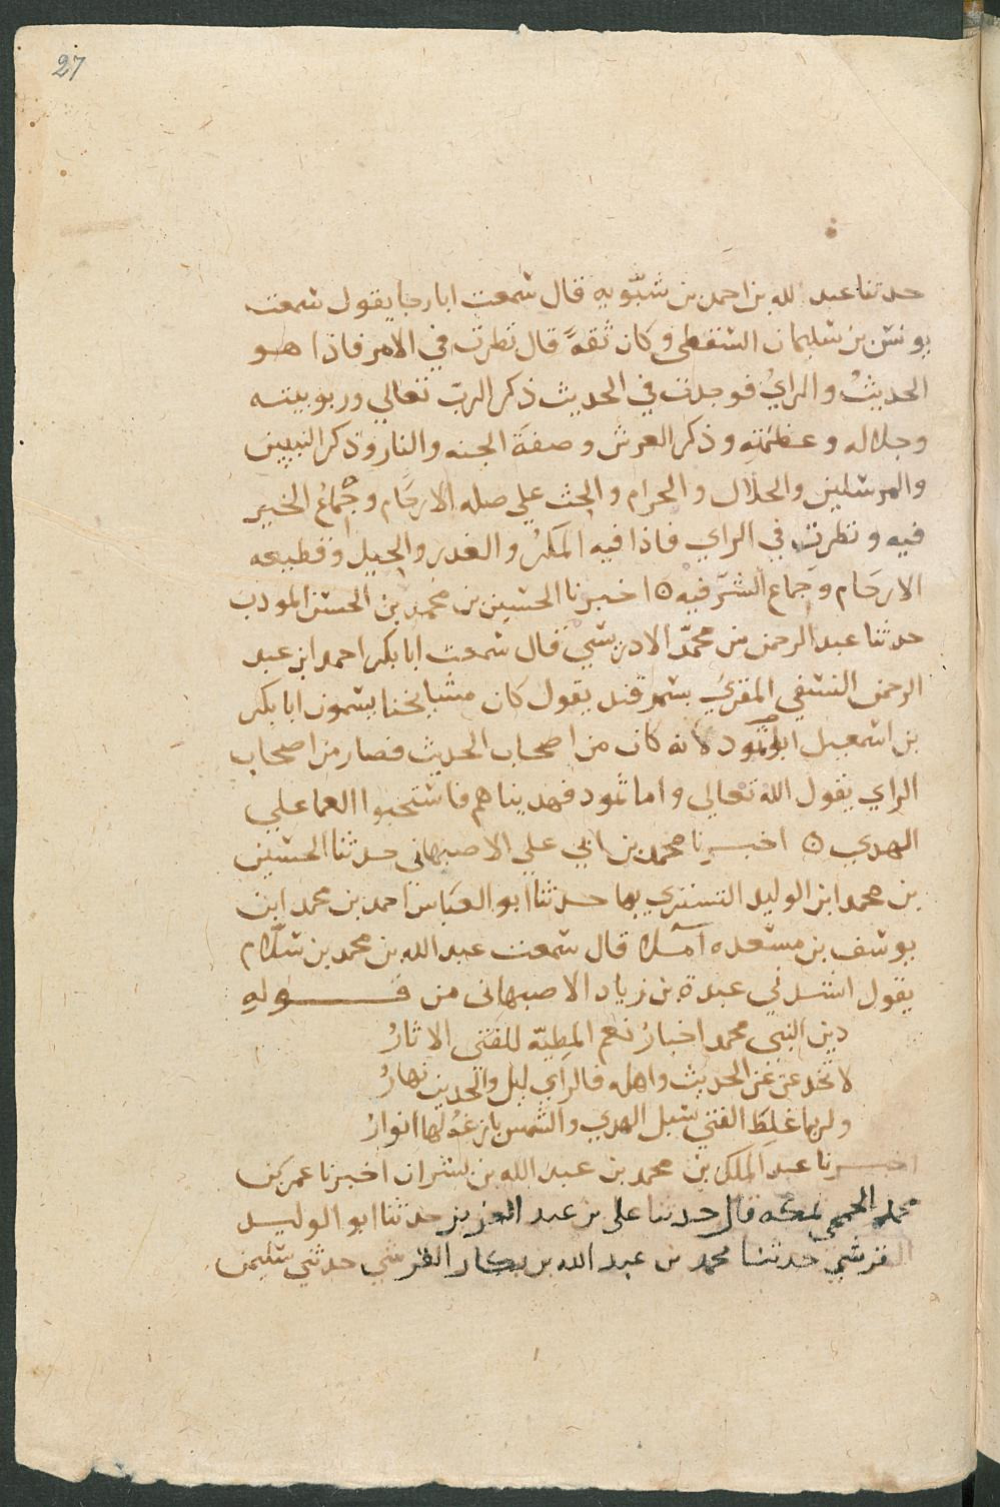 27
حدثنا عبد الله بن احمد بن شبّويه قال سمعت ابا رجا يقول سمعت
يونس بن سليمان السقطي وكان ثقةً قال نظرت في الامر فاذا هو
الحديثُ والرايُ فوجدت في الحديث ذكر الربّ تعالي وربوبيته
وجلاله وعظمتِه وذكر العرش وصفةَ الجنه والنار وذكر النبيين
والمرسلين والحلال والحرام والحث علي صله الارحَام وجُمّاعُ الخير
فيه ونظرت في الراي فاذا فيه المكرُ والغدر والحيل وقطيعه
الارحَام وجماع الشّر فيه ۞ اخبرنا الحسين بن محمد بن الحسن المودب
حدثنا عبد الرحمن بن محمّد الادريسي قال سمعت ابا بكر احمد ابن عبد
الرحمن النسفي المقريُ بسمرقند يقول كان مشايخنا يسمون ابا بكر
بن اسمعيل ابو ثمود لانه كان من اصحاب الحديث فصار من اصحاب
الراي يقول الله تعالي واما ثمود فهديناهم فاستحبوا العما علي
الهدي ۞ اخبرنا محمد بن ابي علي الاصبهاني حدثنا الحسين
بن محمد ابن الوليد التستري بها حدثنا ابو العبَاس احمد بن محمد ابن
يوسف بن مسعده املا قال سمعت عبد الله بن محمد بن سلام
يقول انشدني عبدة بن زياد الاصبهاني من قوله
دين النبي محمد اخبارُ نعم المطيّه للفتي الاثارُ
لا تخدعن عن الحديث واهله فالراي ليل والحديث نهارُ
ولربما غلِطَ الفتي سبل الهدي والشمس بازغهٌ لها انوارُ
اخبرنا عبد الملك بن محمد بن عبد الله بن بشران اخبرنا عمر بن
محمد الجمحي بمكه قال حدثنا علي بن عبد العزيز حدثنا ابو الوليد
القرشي حدثنا محمد بن عبد الله بن بكار القرشي حدثني سليمن